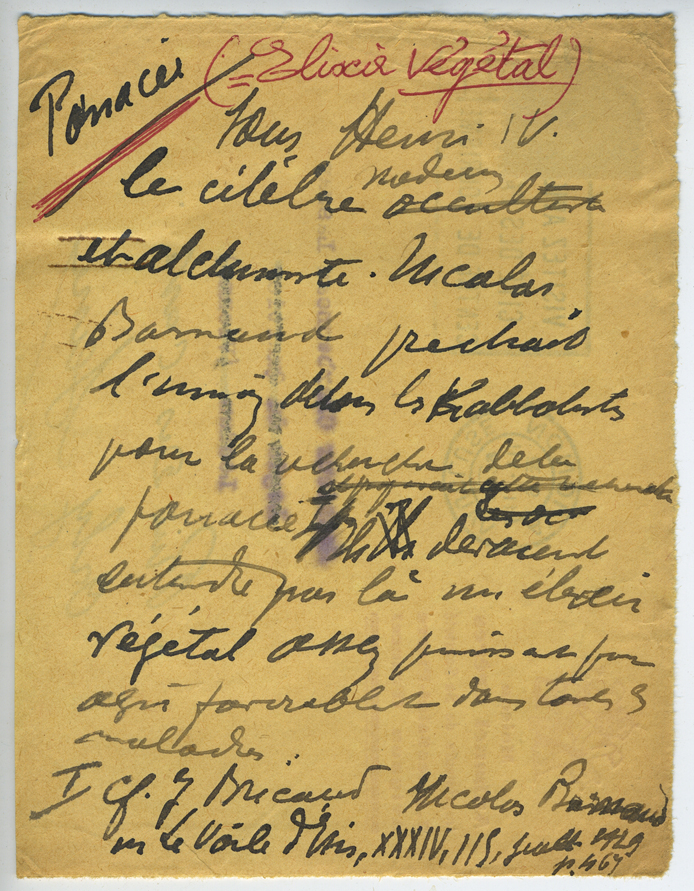 Panacée (= Elixir végétal)
Sous Henri IV.
le célèbre médecin occultiste
et alchimiste. Nicolas
Barnaud prechait
l'union de tous les Kabbalistes
pour la recherche de la
panacée Ils devaient
entendre par là un élixir
végétal assez puissant pour
agir favorablt dans toutes les
maladies.
I cf. J Bricaud Nicolas Barnaud
in Le Voile d'Isis, XXXIV, 115, juillet 1929
p. 467